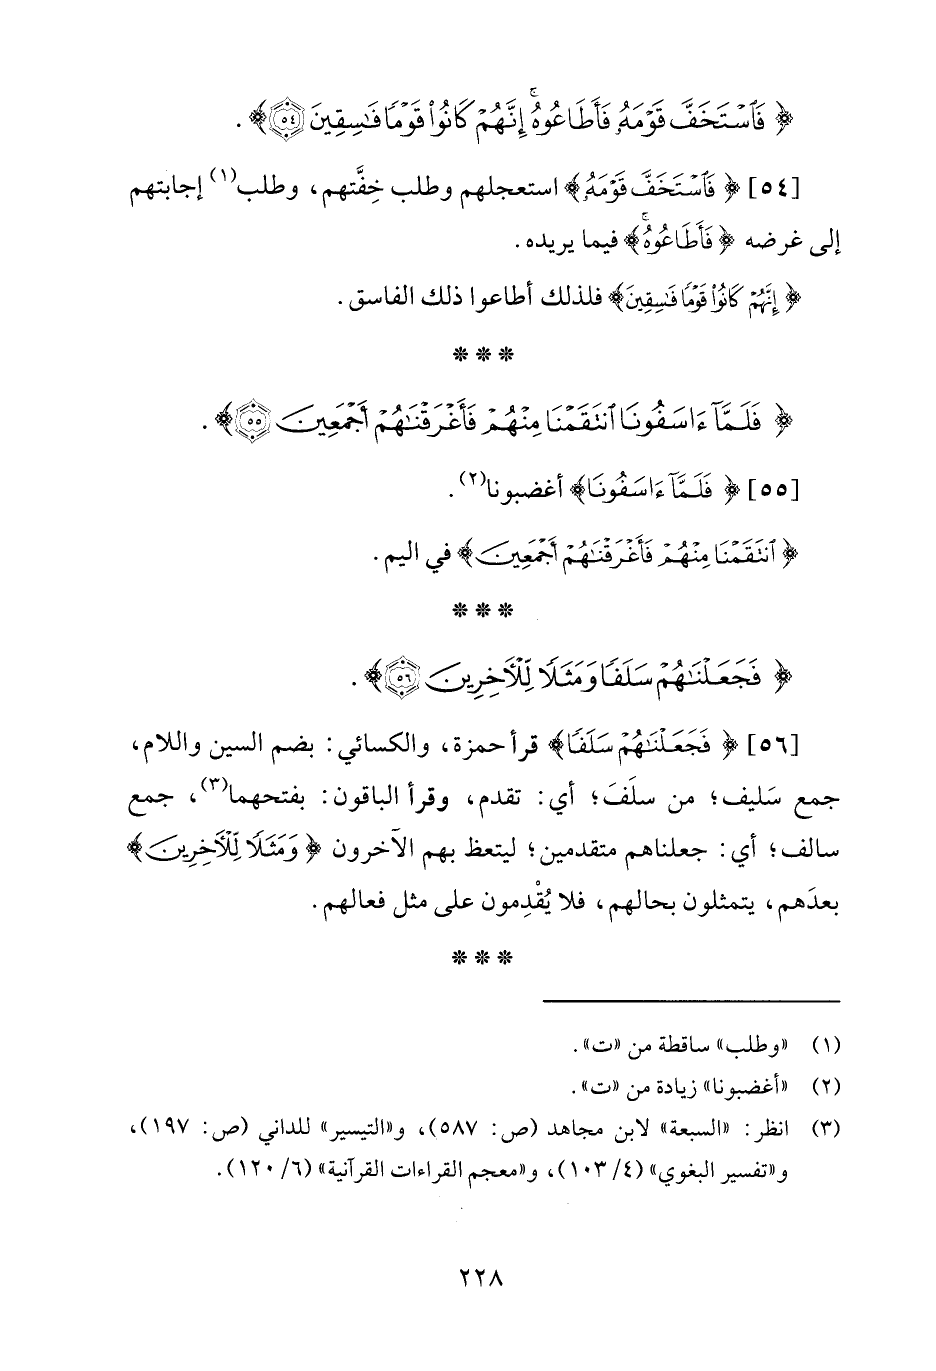 ﴿ فَٱسْتَخَفَّ قَوْمَهُۥ فَأَطَاعُوهُ ۚ إِنَّهُمْ كَانُوا۟ قَوْمًا فَٰسِقِينَ ٥٤ ﴾ .
[٥٤] ﴿ فَٱسْتَخَفَّ قَوْمَهُۥ ﴾ استعجلهم وطلب خِفَّتهم، وطلب(١) إجابتهم
إلى غرضه ﴿ فَأَطَاعُوهُ ۚ ﴾ فيما يريده.
﴿ إِنَّهُمْ كَانُوا۟ قَوْمًا فَٰسِقِينَ ﴾ فلذلك أطاعوا ذلك الفاسق.
* * *
﴿ فَلَمَّآ ءَاسَفُونَا ٱنتَقَمْنَا مِنْهُمْ فَأَغْرَقْنَٰهُمْ أَجْمَعِينَ ٥٥ ﴾ .
[٥٥] ﴿ فَلَمَّآ ءَاسَفُونَا ﴾ أغضبونا(٢).
﴿ ٱنتَقَمْنَا مِنْهُمْ فَأَغْرَقْنَٰهُمْ أَجْمَعِينَ ﴾ في اليم.
* * *
﴿ فَجَعَلْنَٰهُمْ سَلَفًا وَمَثَلًا لِّلْءَاخِرِينَ ٥٦ ﴾ .
[٥٦] ﴿ فَجَعَلْنَٰهُمْ سَلَفًا ﴾ قرأ حمزة، والكسائي: بضم السين واللام،
جمع سَليف؛ من سلَفَ؛ أي: تقدم، وقرأ الباقون: بفتحهما(٣)، جمع
سالف؛ أي: جعلناهم متقدمين؛ ليتعظ بهم الآخرون ﴿ وَمَثَلًا لِّلْءَاخِرِينَ ﴾
بعدَهم، يتمثلون بحالهم، فلا يُقْدِمون على مثل فعالهم.
* * *
(١) «وطلب» ساقطة من «ت».
(٢) «أغضبونا» زيادة من «ت».
(٣) انظر: «السبعة» لابن مجاهد (ص: ٥٨٧)، و«التيسير» للداني (ص: ١٩٧)،
و«تفسير البغوي» (٤/ ١٠٣)، و«معجم القراءات القرآنية» (٦/ ١٢٠).
٢٢٨